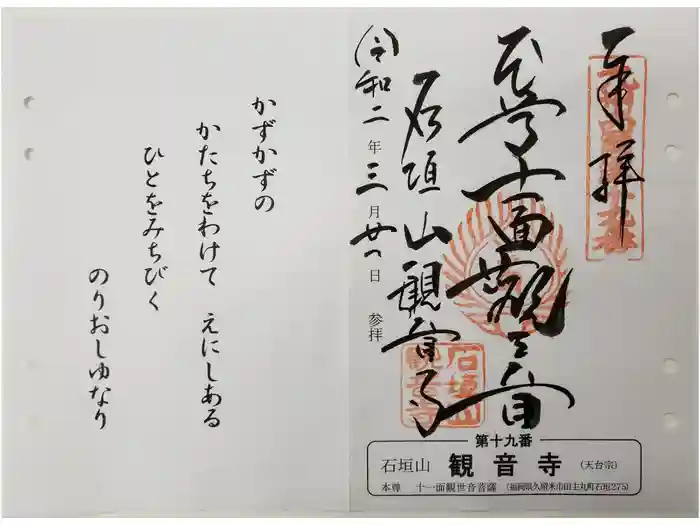 奉拝
本尊十面観世音
石垣山観音寺
令和二年三月廿一日 参拝
石垣山
観音寺
第十九番
石垣山 観音寺 (天台宗)
本尊 十一面観世音菩薩 (福岡県久留米市田主丸町石垣275)
かずかずの
かたちをわけて えにしある
ひとをみちびく
のりおしゆなり